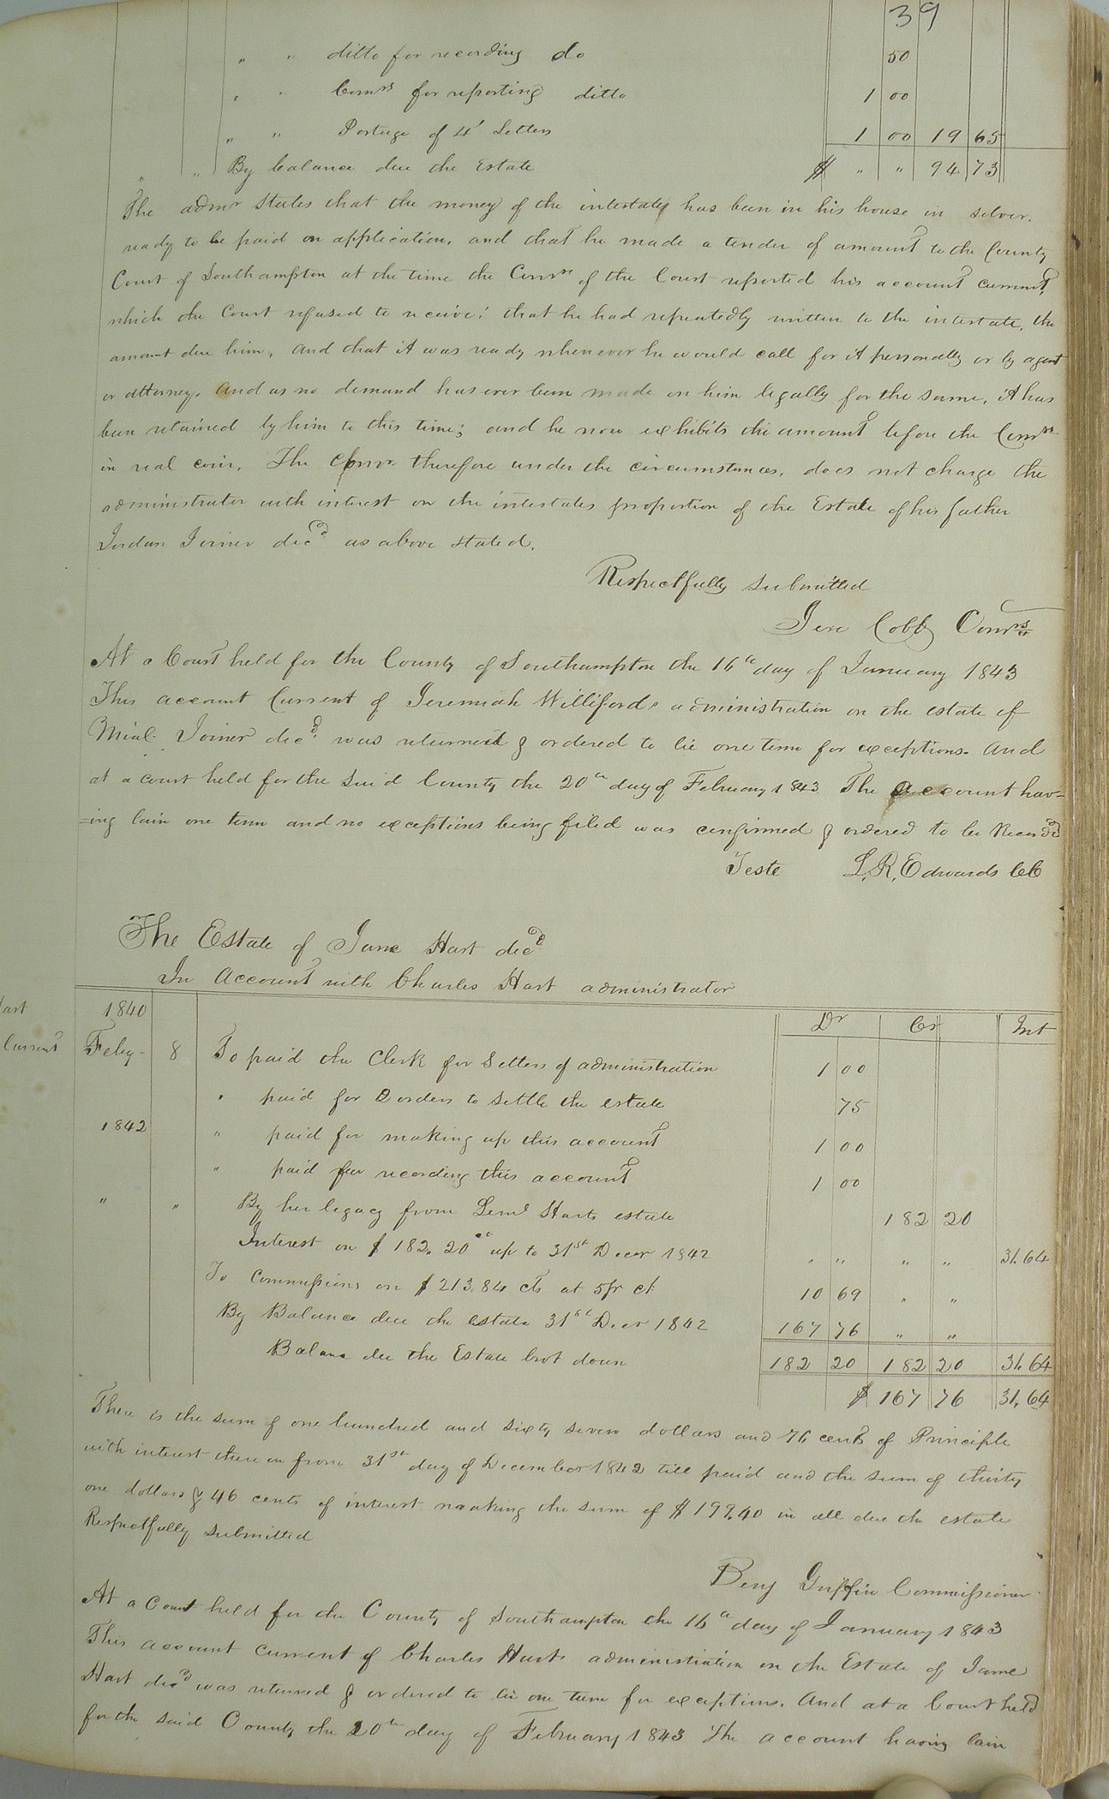 39
" " ditto for recording do 50
" " Comrs for reporting ditto 1 00
" " Postage of 4 Letters 1 00 19 65
" " By balance due the Estate $ " " 94 73
The admr States that the money of the intestate has been in his house in silver.
ready to be paid on application, and that he made a tender of amount to the County
Court of Southampton at the time the Comrs of the Court reported his account current,
which the Court refused to receive: that he had repeatedly written to the intestate, the
amount due him, and that it was ready whenever he would call for it personally or by agent
or attorney. And as no demand has ever been made on him legally for the same, it has
been retained by him to this time; and he now exhibits the amount before the Comrs
in real coin. The Comr therefore under the circumstances, does not charge the
administrator with interest on the intestates proportion of the Estate of his father
Jordan Joiner decd as above stated.
Respectfully submitted
Jere Cobb Comrs
At a Court held for the County of Southampton the 16th day of January 1843
This account Current of Jeremiah Williford's administration on the estate of
Mial Joiner decd was returned & ordered to lie one term for exceptions. And
at a court held for the said County the 20th day of February 1843 The account hav=
=ing lain one term and no exceptions being filed was confirmed & ordered to be Recordd
Teste L. R. Edwards CC
The Estate of Jane Hart decd
In Account with Charles Hart administrator
Hart
Current
1840 Dr Cr Int
Feby 8 To paid the Clerk for Letters of administration 1 00
" paid for 2 orders to settle the estate 75
1842 " paid for making up this account 1 00
" paid for recording this account 1 00
" " By her legacy from Leml Harts estate 182 20
Interest on $182.20 cts up to 31st Decer 1842 " " " " 31.64
To Commissions on $213.84 cts at 5 pr ct 10 69 " "
By Balance due the estate 31st Decer 1842 167 76 " "
Balance due the Estate brot down 182 20 182 20 31.64
$ 167 76 31.64
There is the sum of one hundred and sixty seven dollars and 76 cents of Principle
with interest thereon from 31st day of December 1842 till paid and the sum of thirty
one dollars & 46 cents of interest making the sum of $199.40 in all due the estate
Respectfully submitted
Benj Griffin Commissioner
At a Court held for the County of Southampton the 16th day of January 1843
This account current of Charles Harts administration on the Estate of Jane
Hart decd was returned & ordered to lie one term for exceptions. And at a Court held
for the said County the 20th day of February 1843 The account having lain